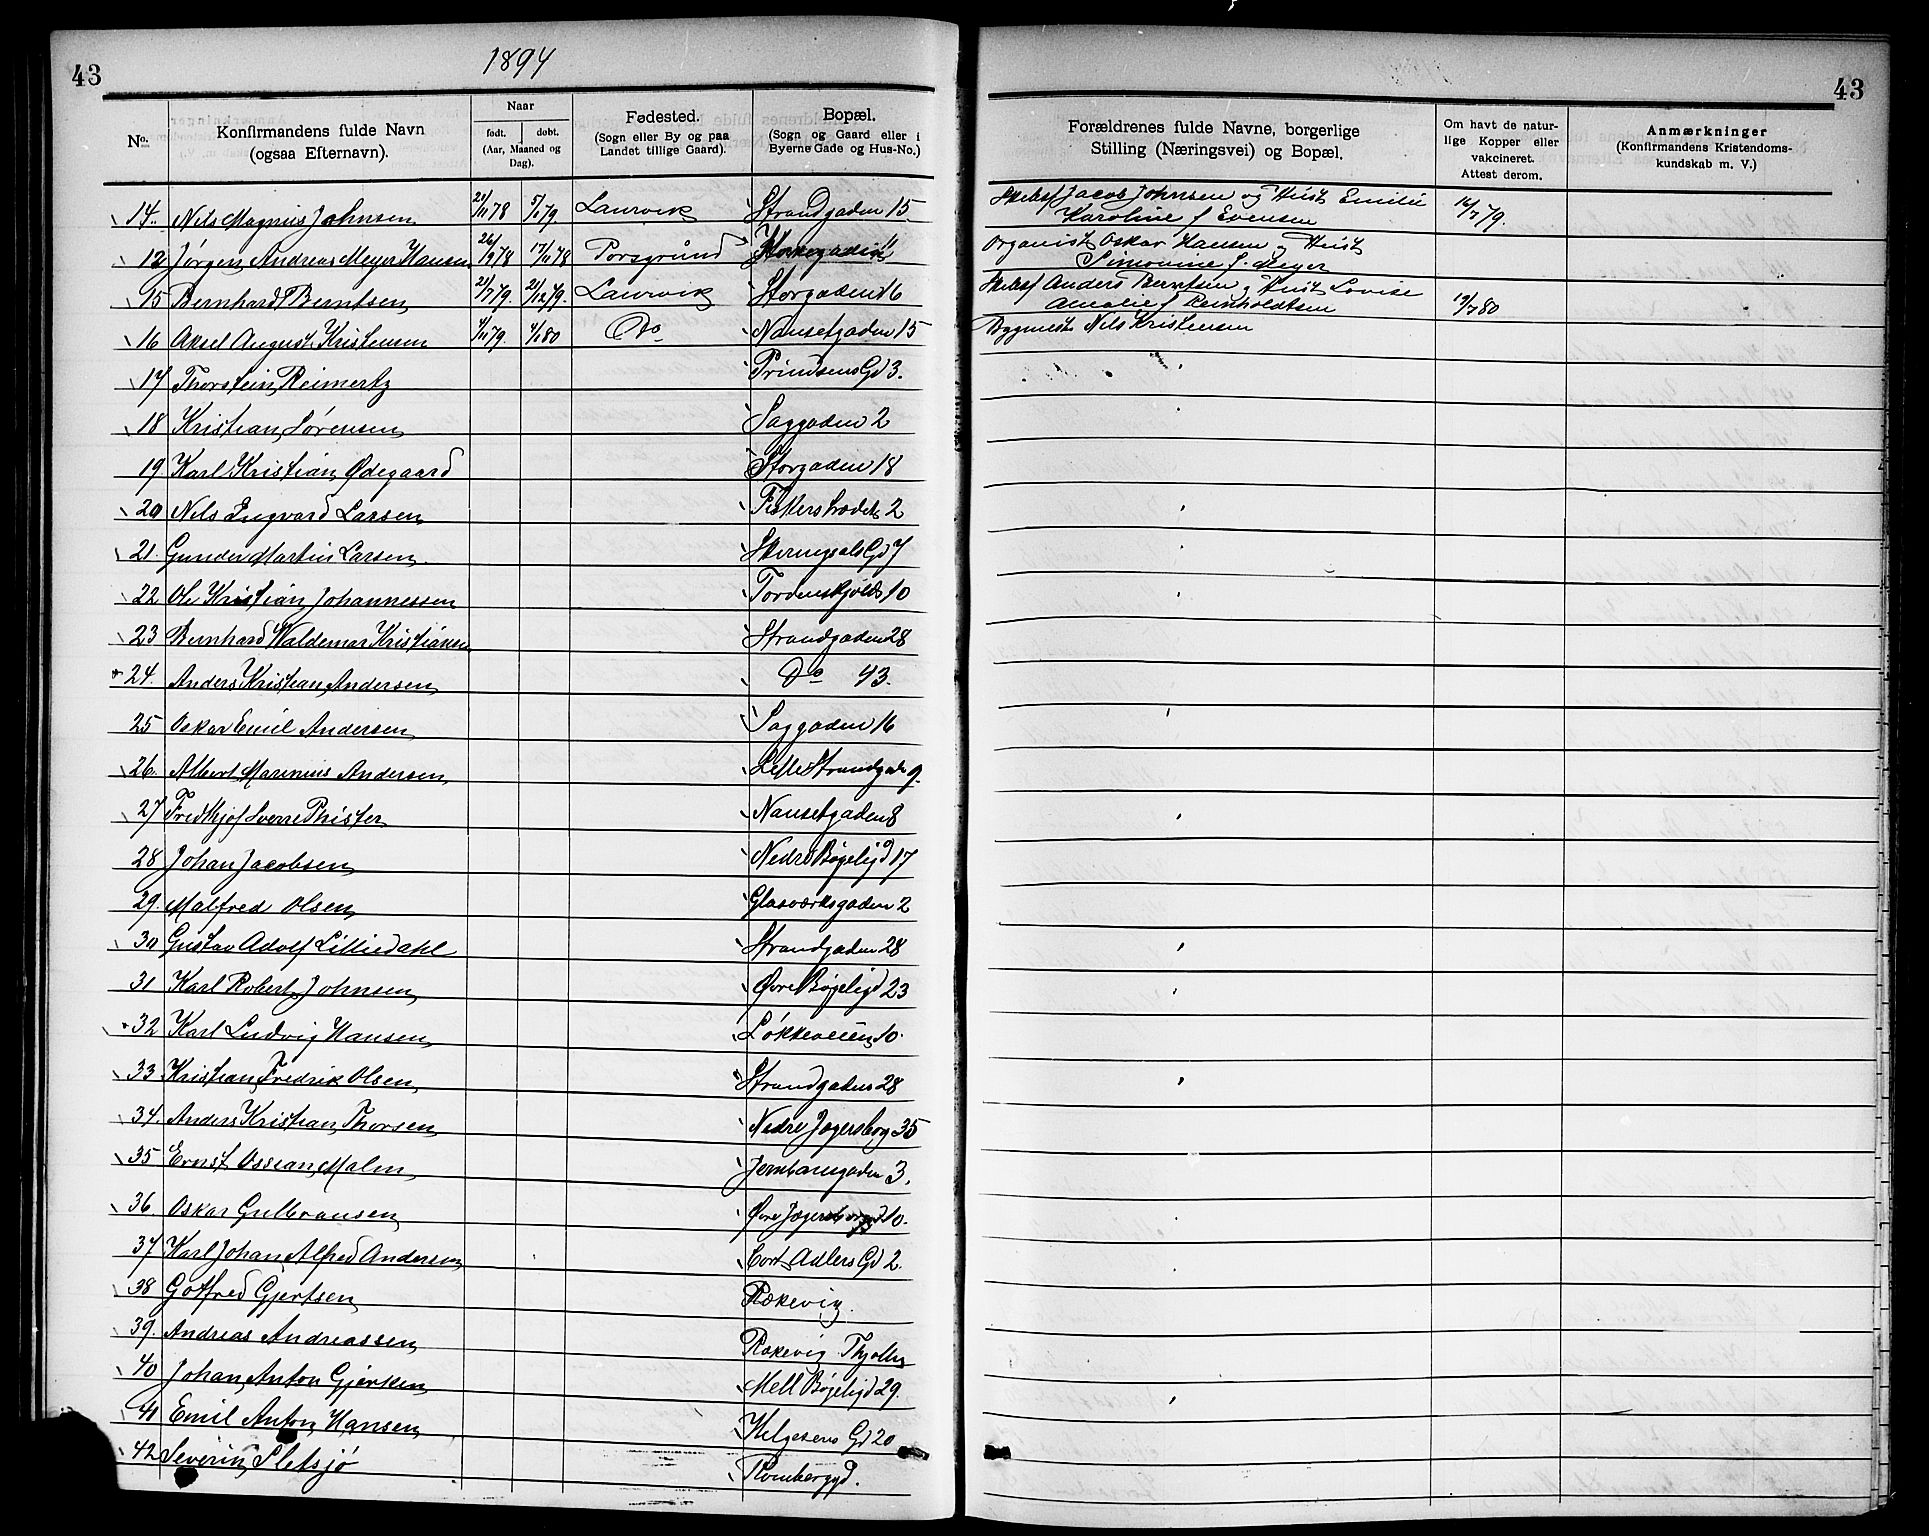 43
1894
43
No.
Konfirmandens fulde Navn
(ogsaa Efternavn).
Naar
født.
døbt.
(Aar, Maaned og Dag).
Fødested.
(Sogn eller By og paa
Landet tillige Gaard).
Bopæl.
(Sogn og Gaard eller i
Byerne Gade og Hus-No.)
Forældrenes fulde Navne, borgerlige
Stilling (Næringsvei) og Bopæl.
Om havt de natur-
lige Kopper eller
vakcineret.
Attest derom.
Anmærkninger
(Konfirmandens Kristendoms-
kundskab m. V.)
14. Nels Magnus Johnsen 5/1 79 Laurvik Strandgaden 15 Jacob Johnsen og Hust Emilie
Karoline f Evensen 16/7 79.
12 Jørgen Andreas Meyer Hansen 26/9 78 17/11 78 Porsgrund Organist Oskar Hansen og Hust
Simonine f. Meyer
15 Bernhard Berntsen 21/7 79. 21/12 79. Laurvik Storgaden 16 Anders Berntsen og Hust Lovise
Amalie f Reinholdtsen 19/7 80
16 Aksel August Kristensen 4/11 79. 4/1 80 Do Nansetgaden 15 Bygmest Nils Kristensen
17 Thorstein Reimertz Prindsens Gd 3.
18 Kristian Sørensen Saggaden 2
19. Karl Kristian Ødegaard Storgaden 18
20 Nels Ingvard Larsen Fiskerstrædet 2
21. Gunder Martin Larsen Skiringsals Gd 7
22 Ole Kristian Johannessen Tordenskjolds 10
23 Bernhard Waldemar Kristiansen Strandgaden 28
24. Anders Kristian Andersen Do 43.
25 Oskar Emil Andersen Saggaden 16
26. Albert Marinius Andersen Lille Strandgade 9.
27 Fredthjof Sverre Phister Nansetgaden 8
28 Johan Jacobsen Nedre Bøgeligd 17
29. Malfred Olsen Glasværksgaden 2
30 Gustav Adolf Lilliedahl Strandgaden 28
31 Karl Robert Johnsen Øvre Bøgeligd 23
32 Karl Ludvig Hansen Løkkeveien 10.
33 Kristian Fredrik Olsen Strandgaden 28
34. Anders Kristian Thorsen Nedre Jegersborg 35
35 Ernst Ossian Malen Jernbanegaden 3.
36. Oskar Gulbransen Øvre Jægersborgd 10.
37 Karl Johan Alfred Andersen Cort Adlers Gd 2.
38 Gotfred Gjertsen Rækevig.
39. Andreas Andreassen Rækevig Thjølling
40 Johan Anton Gjerken Mell Bøgeligd 29.
41 Emil Anton Hansen Helgesens Gd 20
42 Severin Sletsjø Rombergd.